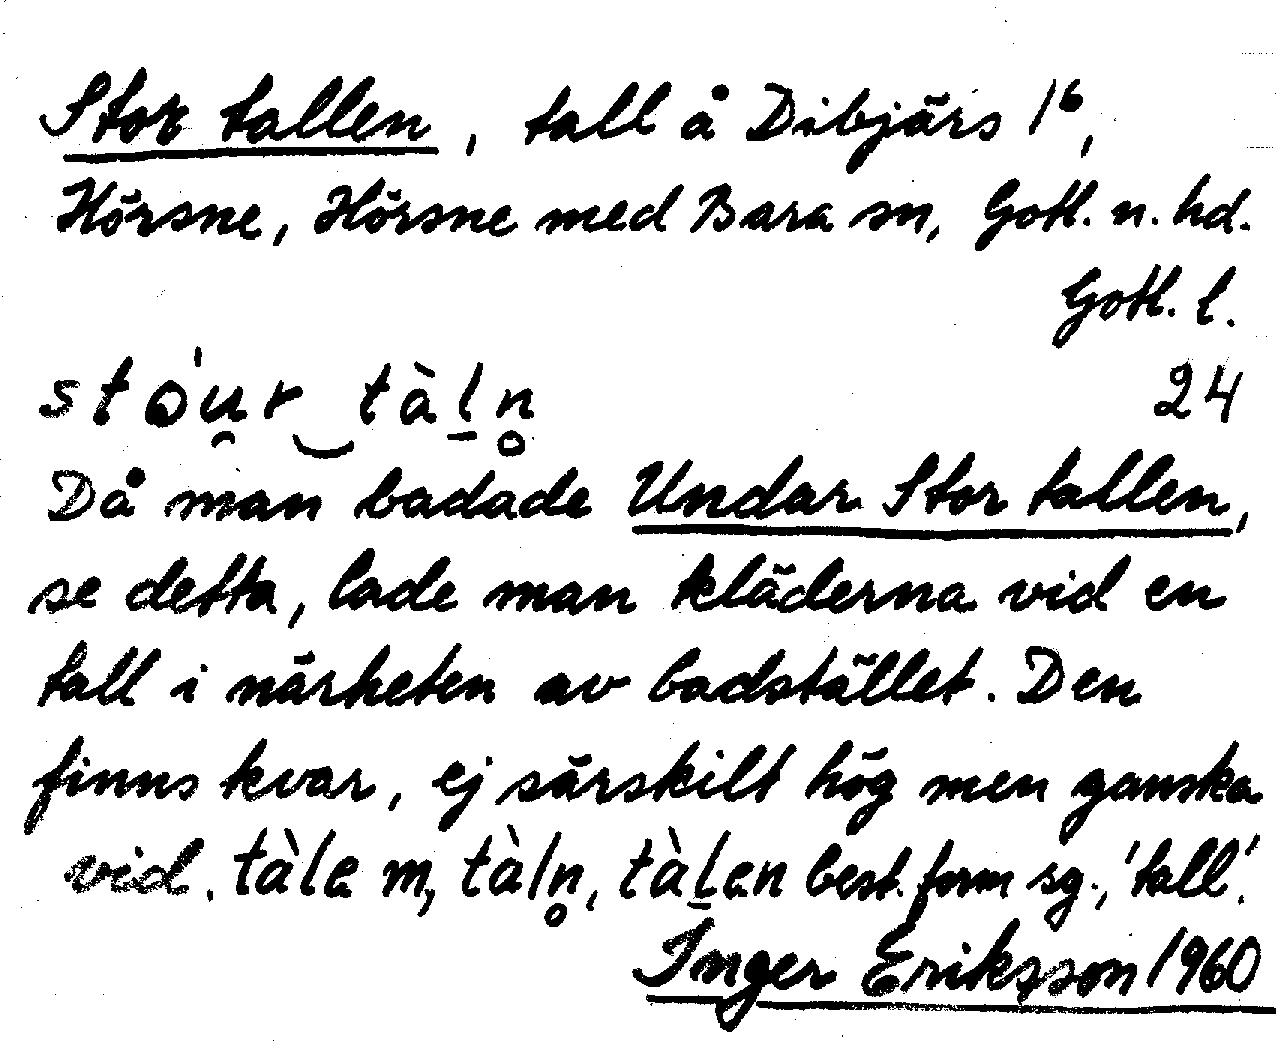 Stor tallen, tall å Dibjärs 1⁶,
Hörsne, Hörsne med Bara sn, Gotl. n. hd.
Gotl. l.
stɷ́u̯r‿tàl̲n̥ 24
Då man badade Undar Stor tallen,
se detta, lade man kläderna vid en
tall i närheten av badstället. Den
finns kvar, ej särskilt hög men ganska
vid. tàlɐ m, tàln̥, tàl̲ɐn best. form sg., 'tall'.
Inger Eriksson 1960